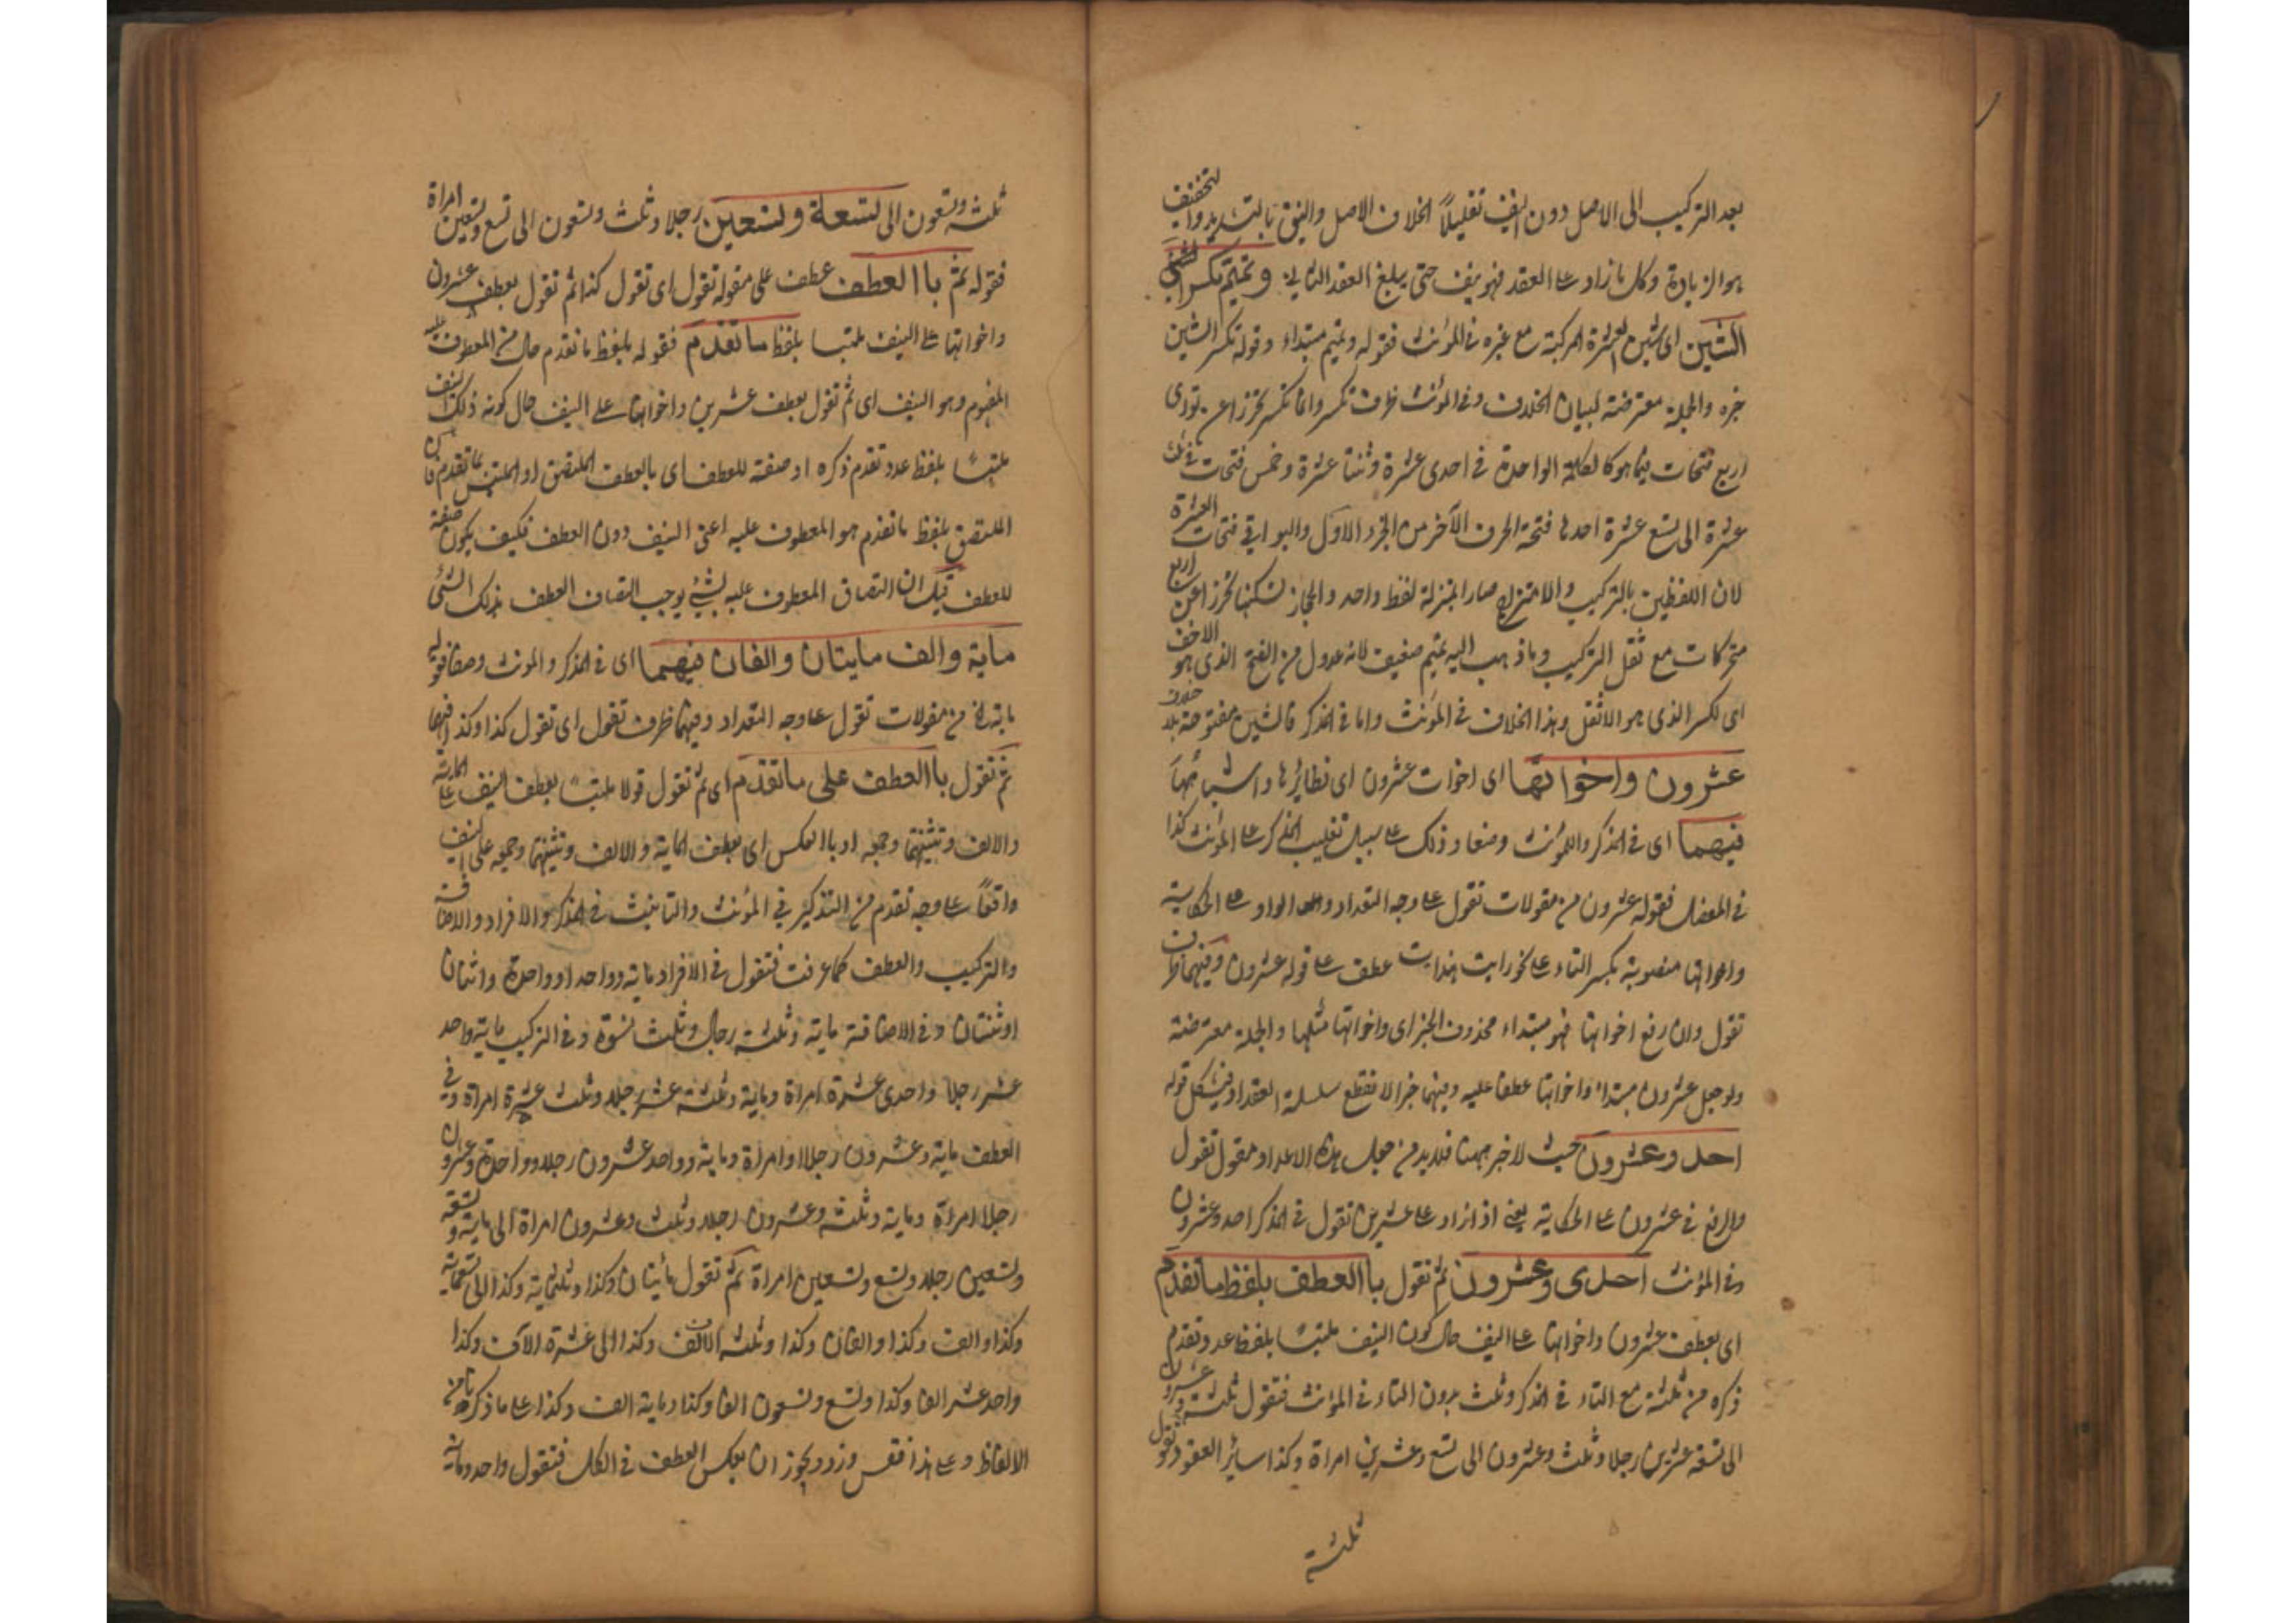 بعد التركيب الى الاصل دون النيف تقليلاً لخلاف الاصل والنيف بالتشديد والتخفيف
هو الزيادة وكل ما زاد على العقد فهو نيف حتى يبلغ العقد الثاني وتميم تكسر
الشين اى شين العشرة المركبة مع غيره في المؤنث فقوله وتميم مبتداء وقوله تكسر الشين
خبره والجملة معترضة لبيان الخلاف وفي المؤنث ظرف تكسر وانما تكسر تحرزا عن توالى
اربع فتحات فيما هو كالكلمة الواحدة في احدى عشرة وثنتا عشرة وخمس فتحات في ثلث
عشرة الى تسع عشرة احدها فتحة الحرف الآخر من الجزء الاول والبواقي فتحات العشرة
لان اللفظين بالتركيب والامتزاج صارا بمنزلة لفظ واحد والحجاز تسكنها تحرزا عن اربع
متحركات مع ثقل التركيب وما ذهب اليه تميم ضعيف لانه عدول من الفتح الذى هو الاخف
الى الكسر الذى هو الاثقل وهذا الخلاف في المؤنث واما في المذكر فالشين مفتوحة بلا خلاف
عشرون واخواتها اى اخوات عشرون اى نظائرها واشباهها
فيهما اى في المذكر والمؤنث وضعا وذلك على سبيل تغليب المذكر على المؤنث كذا
في المفصل فقوله عشرون من مقولات تقول على وجه التعداد والواو على الحكاية
واخواتها منصوبة بكسر التاء على نحو رايت هندات عطف على قوله عشرون وفيهما ظرف
تقول وان رفع اخواتها فهو مبتداء محذوف الخبر اى واخواتها مثلها والجملة معترضة
ولو جعل عشرون مبتداء واخواتها عطفا عليه وفيهما خبرا لانقطع سلسلة التعداد ويشكل قوله
احد وعشرون حيث لا خبر ههنا فلا بد من جعل هذه الاعداد مقول تقول
والرفع في عشرون على الحكاية يعني اذا زاد على عشرين تقول في المذكر احد وعشرون
وفي المؤنث احدى وعشرون ثم تقول با العطف بلفظ ما تقدم
اى بعطف عشرون واخواتها على النيف حال كون النيف ملتبسًا بلفظ عدد تقدم
ذكره من ثلثة مع التاء في المذكر وثلث بدون التاء في المؤنث فتقول ثلثة وعشرون
الى تسعة عشرين رجلا وثلث وعشرون الى تسع وعشرين امراة وكذا سائر العقود وتقول
ثلثة
ثلثة وتسعون الى تسعة وتسعين رجلا وثلث وتسعون الى تسع وتسعين امراة
فقوله ثم با العطف عطف على مقوله تقول اى تقول كذا ثم تقول بعطف عشرون
واخواتها على النيف ملتبسا بلفظ ما تقدم فقوله بلفظ ما تقدم حال من المعطوف عليه
المفهوم وهو النيف اى ثم تقول بعطف عشرين واخواتها على النيف حال كونه ذلك النيف
ملتبسًا بلفظ عدد تقدم ذكره او صفة للعطف اى بالعطف الملتصق او الملتبس بما تقدم فان
الملتصق بلفظ ما تقدم هو المعطوف عليه اعنى النيف دون العطف فكيف يكون صفة
للعطف قيل ان التصاق المعطوف عليه بشيء يوجب التصاف العطف بذلك الشئ
ماية والف مايتان والفان فيهما اى في المذكر والمونث وضعا فقوله
ماية الخ من مقولات تقول على وجه التعداد وفيهما ظرف تقول اى تقول كذا وكذا فيهما
ثم تقول با العطف على ما تقدم اى ثم تقول قولا ملتبسًا بعطف النيف على الماية
والالف وتثنيتهما وجمعه او بالعكس اى بعطف الماية والالف وتثنيتهما وجمعه على النيف
واقعًا على وجه تقدم من التذكير في المؤنث والتانيث في المذكر والافراد والاضافة
والتركيب والعطف كما عرفت فتقول في الافراد ماية وواحد او واحدة واثنان
او ثنتان وفي الاضافة ماية وثلثة رجال وثلث نسوة وفي التركيب ماية واحد
عشر رجلا واحدى عشرة امراة وماية وثلثة عشر رجلا وثلث عشرة امراة وفي
العطف ماية وعشرون رجلا او امراة وماية وواحد عشرون رجلا وواحدة وعشرون
رجلا امراة وماية وثلثة وعشرون رجلا وثلث وعشرون امراة الى ماية وتسعة
وتسعين رجلا وتسع وتسعين امراة ثم تقول مأيتان وكذا وثلثماية وكذا الى تسعماية
وكذا والف وكذا والفان وكذا وثلثة الالف وكذا الى عشرة الآف وكذا
واحد عشر الفا وكذا وتسع وتسعون الفا وكذا وماية الف وكذا على ما ذكرنا من
الالفاظ وعلى هذا فقس وزد ويجوز ان يعكس العطف في الكل فتقول واحد وماية